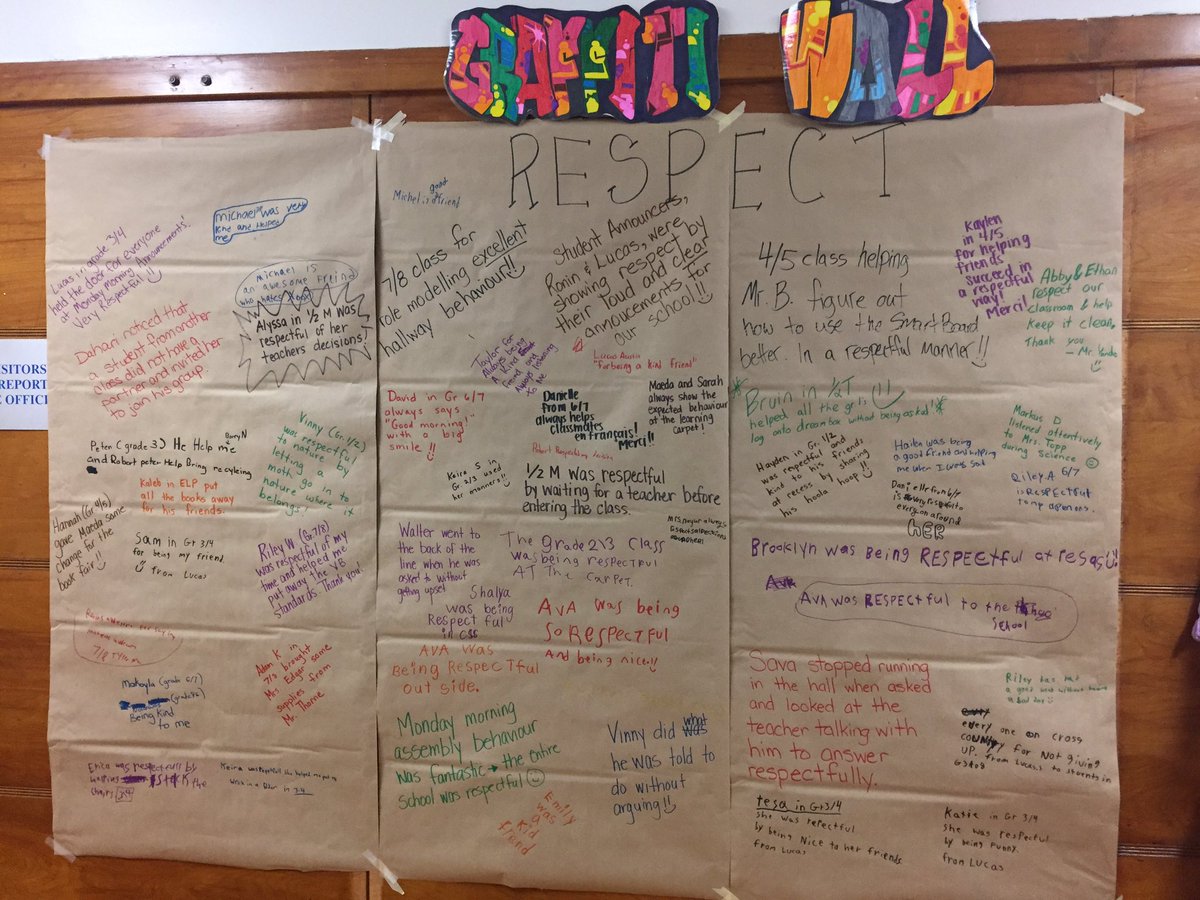 GRAFFITI WALL
RESPECT
VISITORS
REPORT
OFFICE
Lucas in grade 3/4
held the door for everyone
at Monday Morning Announcements!
Very Respectful!!
michael was very
kind and helped
me
Dahari noticed that
a student from another
class did not have a
partner and invited her
to join his group.
michael is
an awesome freind
who hates
Alyssa in 1/2 M was
respectful of her
teachers decisions!
Peter (grade 3) He Help me
and Robert peter Help Bring recycleing
Barry N
Vinny (Gr. 1/2)
was respectful
to nature by
letting a
moth go in to
nature where it
belongs!
Kaleb in ELP put
all the books away
for his friends.
Hannah (Gr 4/5)
gave Maeda some
change for the
book fair!!
Sam in Gr 3/4
for being my friend
from Lucas
Riley W (Gr. 7/8)
was respectful of my
time and helped me
put away the VB
Standards. Thank you!
7/8
Makayla (grade 6/7)
Being kind
to me
Adam K in
7/8 brought
Mrs Edgar some
supplies from
Mr. Thorne
Erica was respectfull by
Keira was
Michel is a good friend
7/8 class for
role modelling excellent
hallway behaviour!!
Student Announcers,
Ronin & Lucas, were
showing respect by
their loud and clear
annoucements for
our school!!
Taylor for
Always being
A kind
friend and
Always listening
to me
Lucas Austin
"for being a kind friend"
David in Gr 6/7
always says
"Good morning!"
with a big
smile!!
Danielle
from 6/7
always helps
classmates
en français!
Merci!!
Maeda and Sarah
always show the
expected behaviour
at the learning
carpet!
Keira S in
Gr 2/3 used
her manners!!
1/2 M was respectful
by waiting for a teacher before
entering the class.
Walter went to
the back of the
line when he was
asked to without
getting upset
The grade 2Y3 class
was being respectful
AT The carpet.
Shalya
was being
Respectful
in css
AvA was being
so Respectful
And being nice!!
AvA was
Being Respectful
out side.
Monday morning
assembly behaviour
was fantastic → the entire
school was respectful
Emilly
was
a
Kid
friend
Vinny did what
he was told to
do without
arguing!!
4/5 class helping
Mr. B. figure out
how to use the SmartBoard
better. In a respectful manner!!
Kaylen
in 4/5
for helping
friends
Succeed in
a respectful
way!
Merci!
Abby & Ethan
respect our
classroom & help
keep it clean.
Thank you
Bruin in 1/2T
helped all the girls
log onto dreambox without being asked!
Hayden in Gr. 1/2
was respectful and
kind to his friends
at recess by sharing
his hoola hoop!!
Hailea was being
a good friend and helping
me when I was sad
Markus D
listened attentively
to Mrs. Topp
during Science
Danielle from 6/7
everyone around
HER
Riley.A 6/7
is RESPECTful
to my opinions.
Brooklyn was being RESPECTful at resas!!
AvA was RESPECTful to the
School
Sava stopped running
in the hall when asked
and looked at the
teacher talking with
him to answer
respectfully.
Riley has had
a good
every one on cross
country for Not giving
UP. from Lucas. to students in
tesa in Gr 3/4
she was repectful
by being Nice to her friends
from Lucas
Katie in Gr 3/4
she was respectful
by being funny.
from Lucas